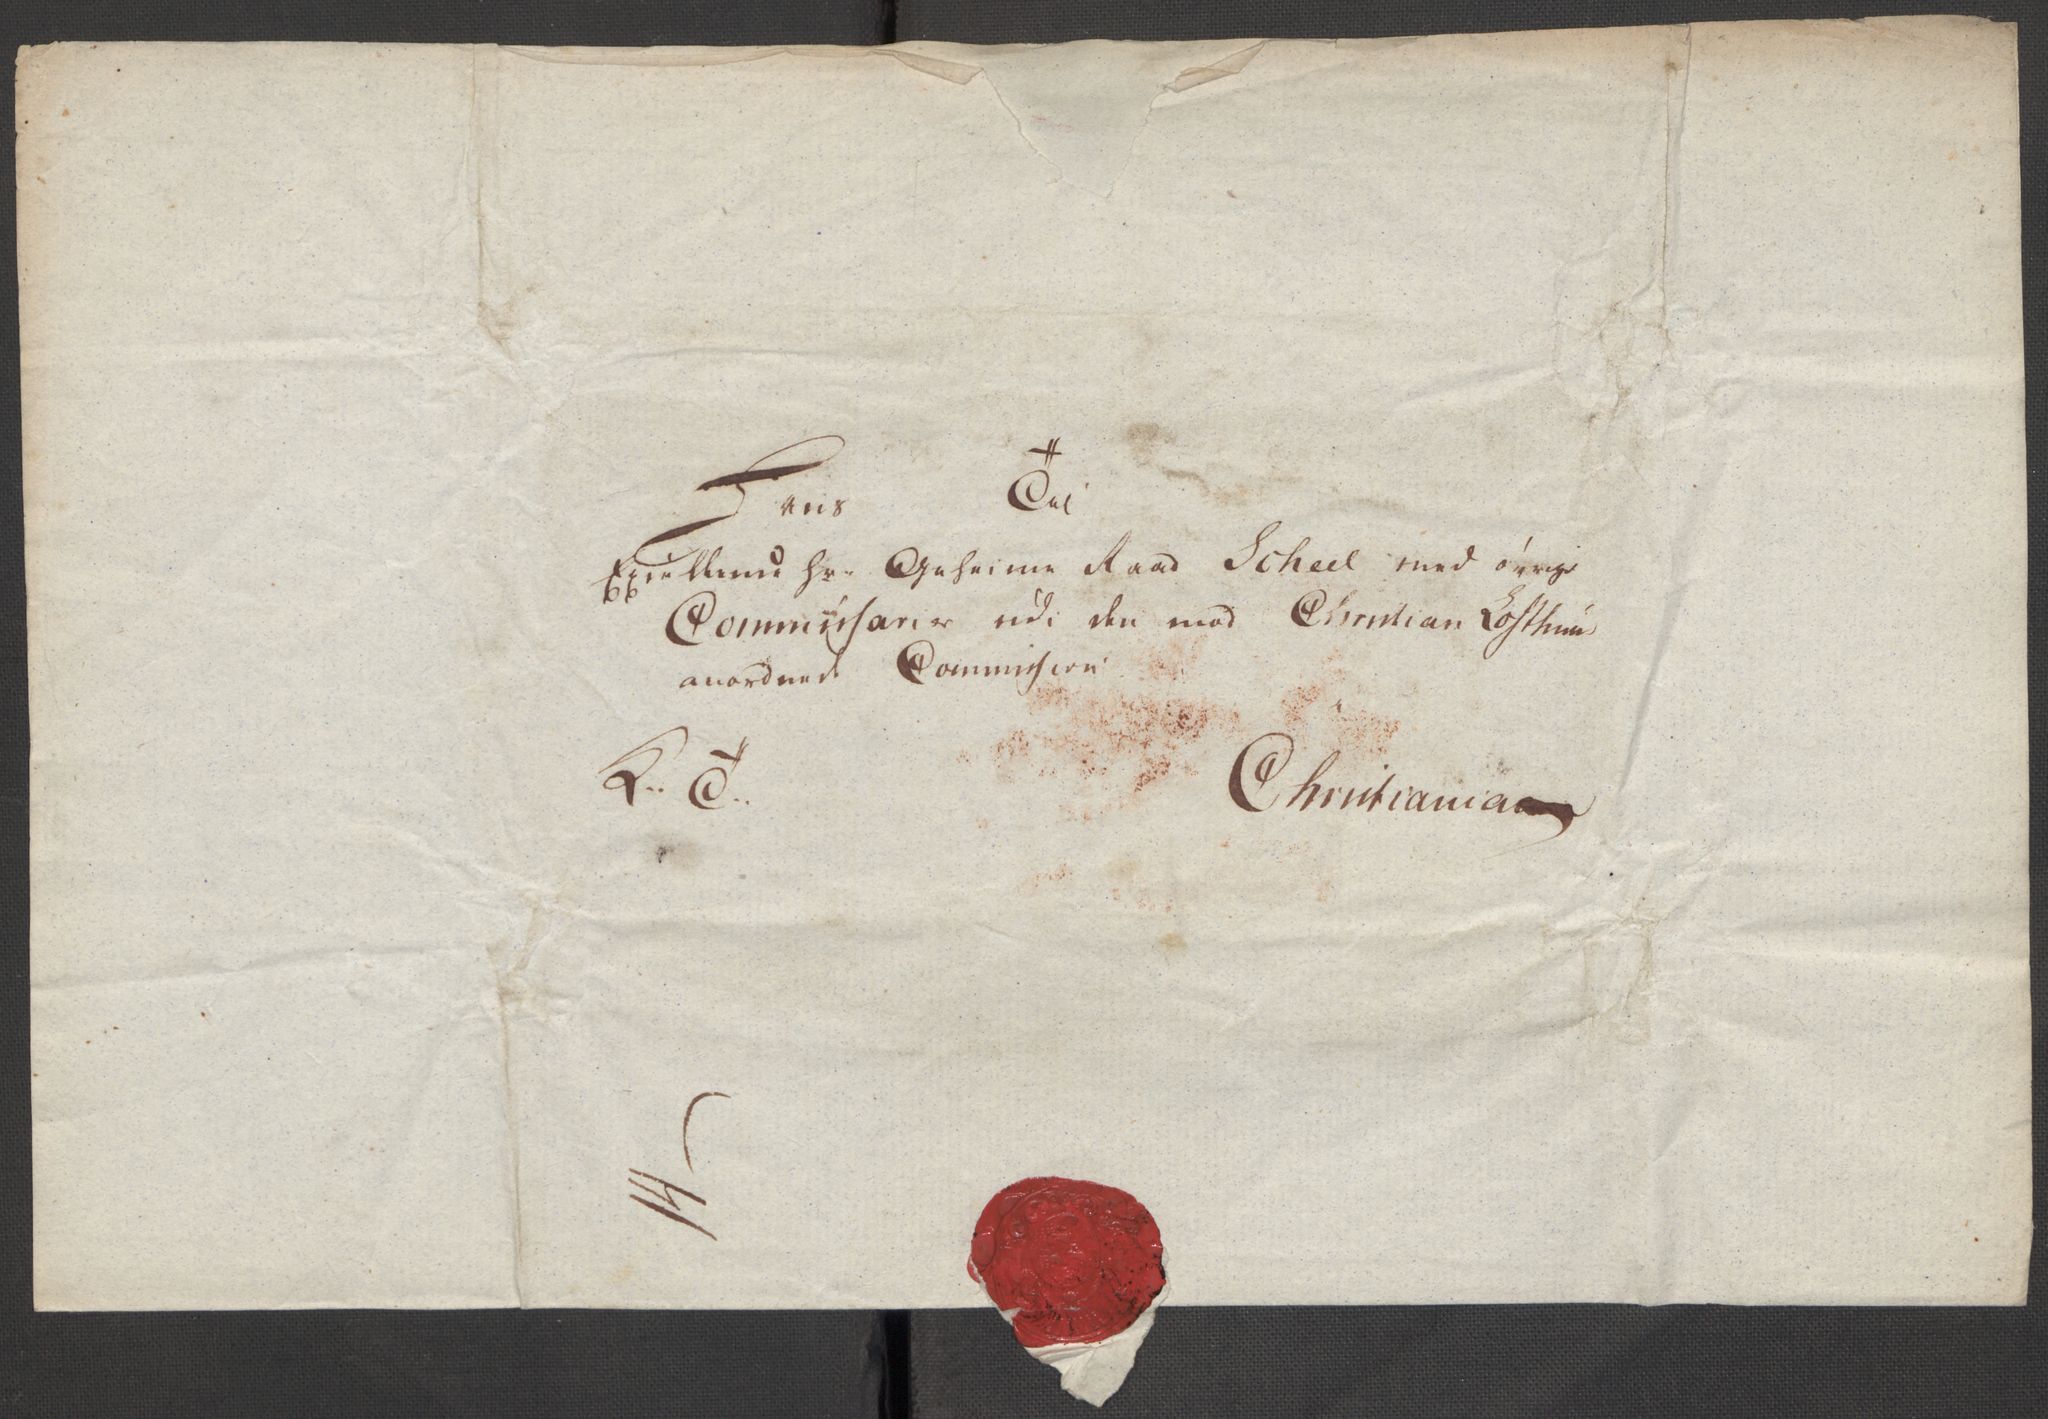 Til
Hans
Excellence Hr. Geheime Raad Scheel med övrige
Commissarier udi den mod Christian Lofthuus
anordnede Commission
K.. T..
Christiania
14